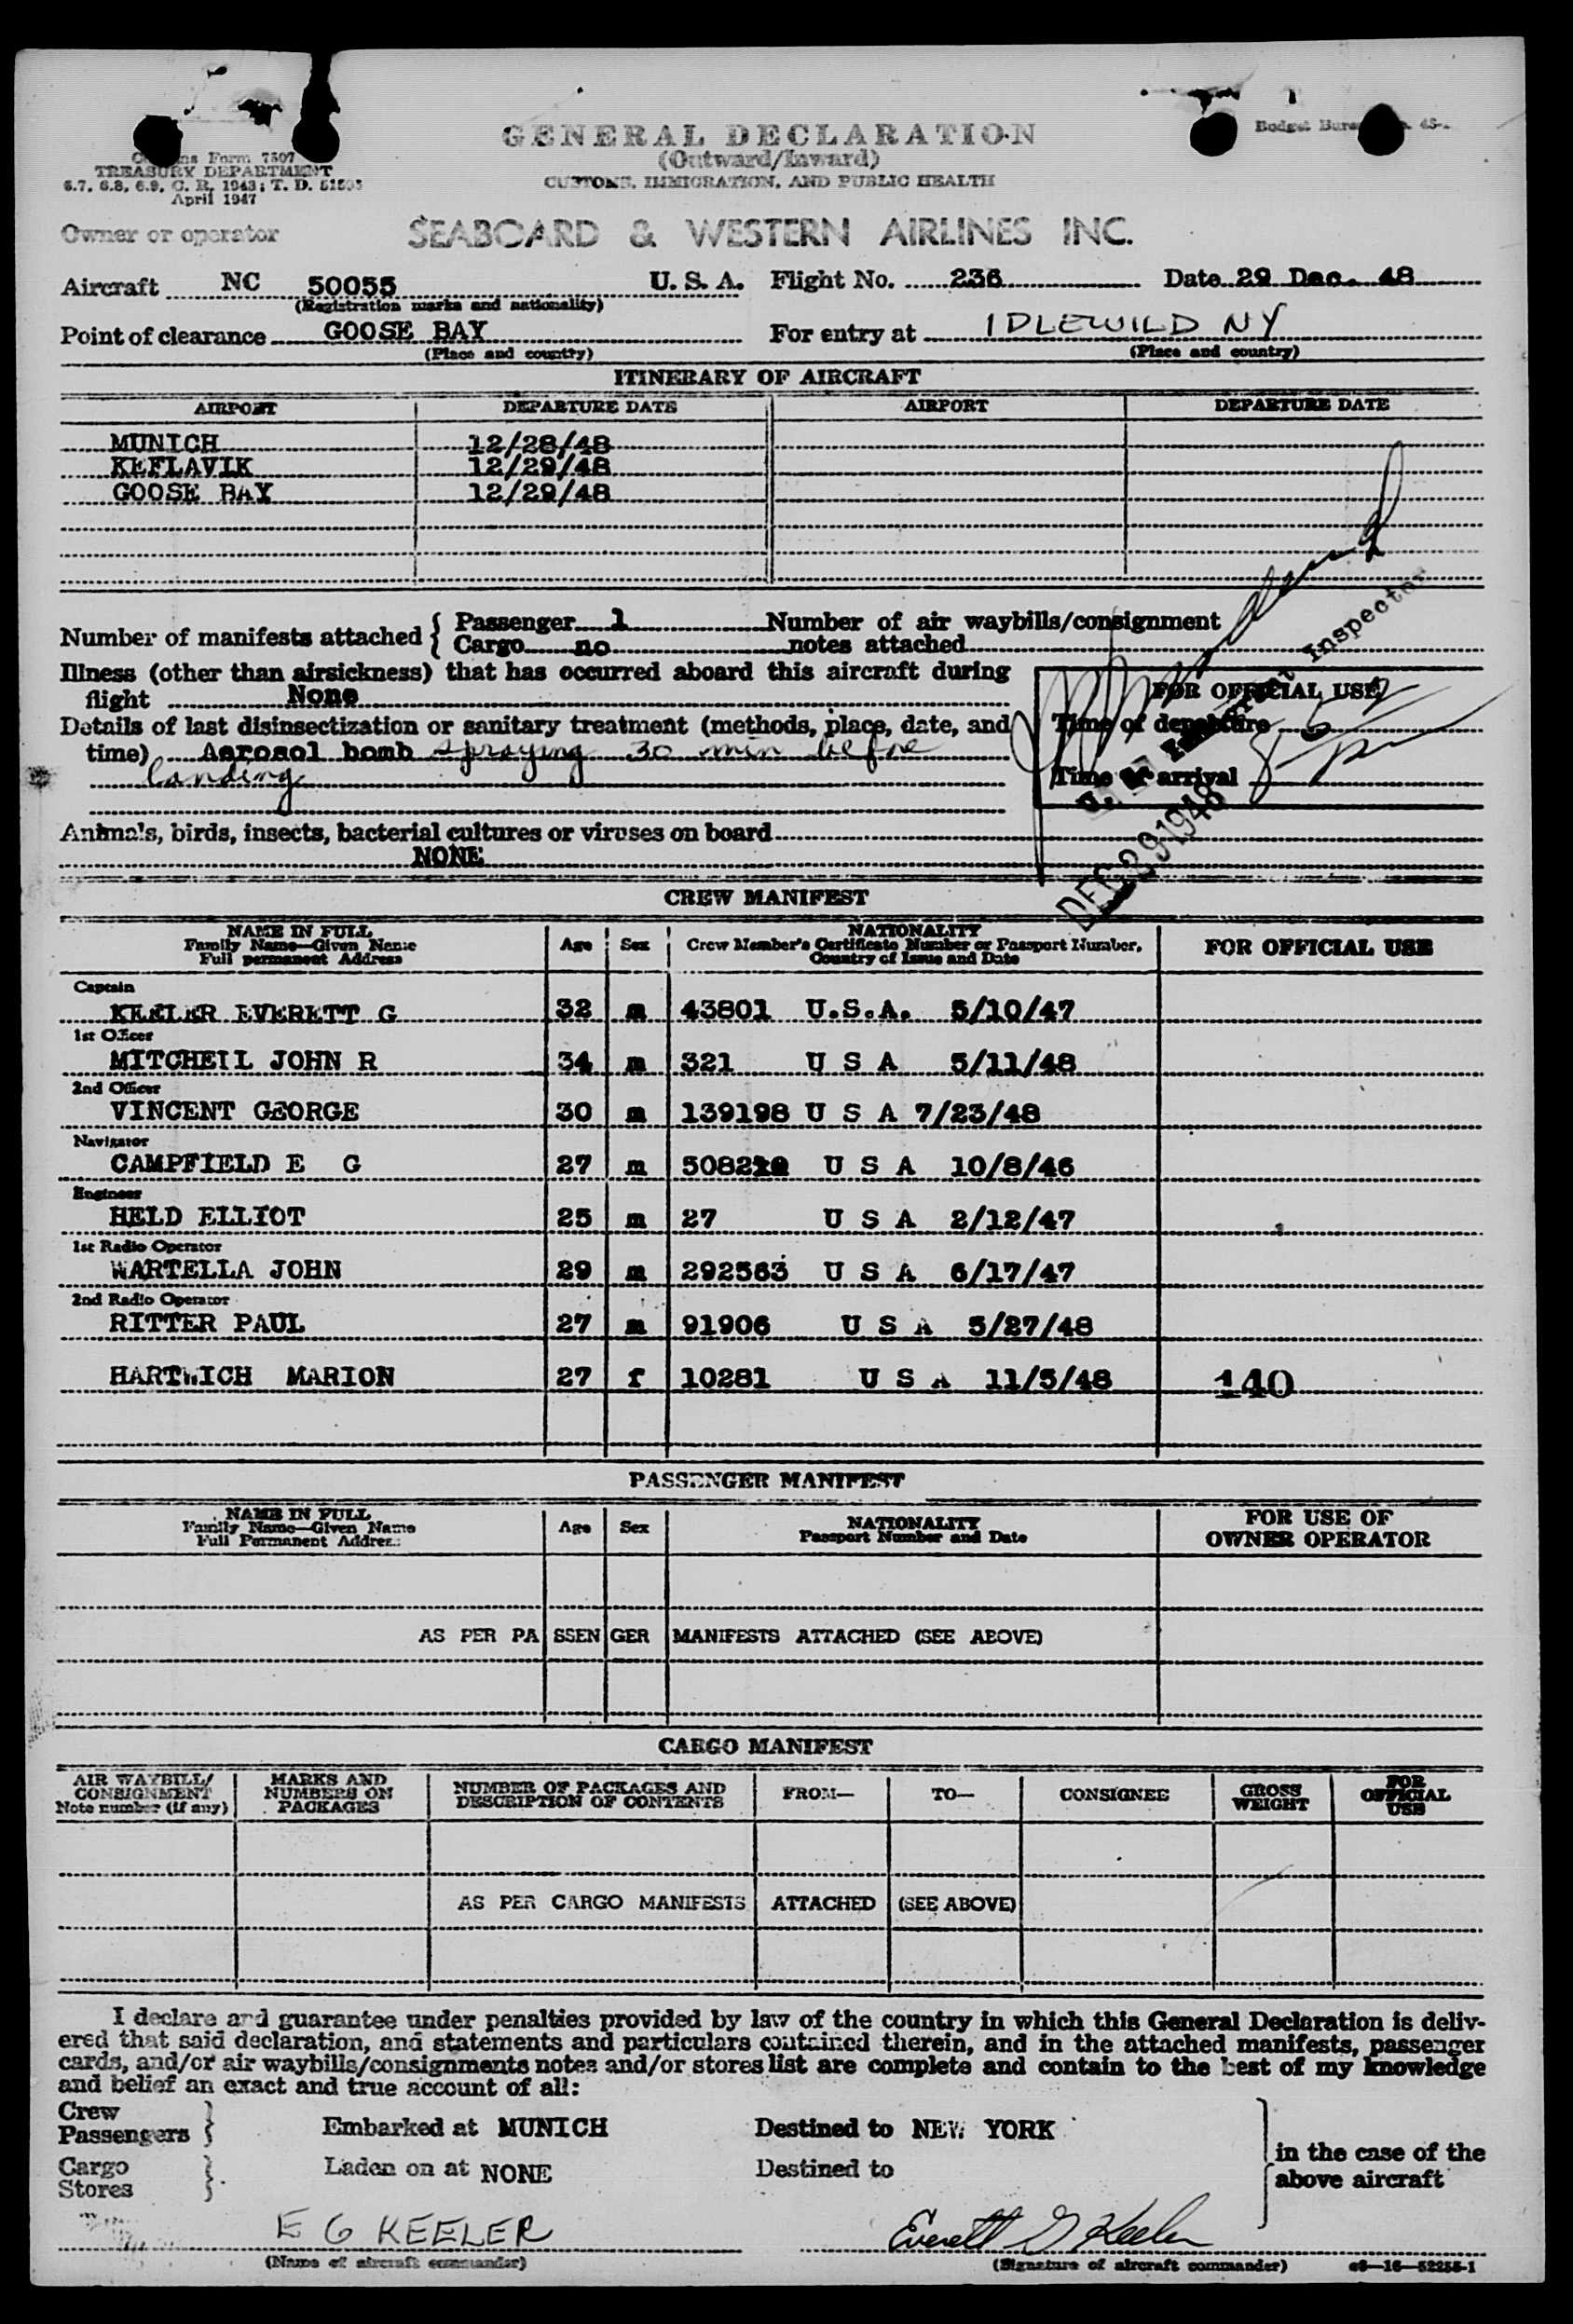 GENERAL DECLARATION
(Outward/Inward)
CUSTOMS, IMMIGRATION, AND PUBLIC HEALTH
Form 7507
TREASURY DEPARTMENT
6.7, 6.8, 6.9, C. R. 1943; T. D.
April 1947
Owner or operator SEABOARD & WESTERN AIRLINES INC.
Aircraft NC 50055 U. S. A. Flight No. 236 Date 29 Dec. 48
(Registration marks and nationality)
Point of clearance GOOSE BAY For entry at IDLEWILD NY
(Place and country) (Place and country)
ITINERARY OF AIRCRAFT
AIRPORT DEPARTURE DATE AIRPORT DEPARTURE DATE
MUNICH 12/28/48
KEFLAVIK 12/29/48
GOOSE BAY 12/29/48
Number of manifests attached { Passenger 1 Number of air waybills/consignment
Cargo no notes attached
Illness (other than airsickness) that has occurred aboard this aircraft during
flight None
Details of last disinsectization or sanitary treatment (methods, place, date, and
time) Aerosol bomb spraying 30 min before
landing
FOR OFFICIAL USE
Time of departure
Time of arrival
Inspector
DEC 29 1948
Animals, birds, insects, bacterial cultures or viruses on board
NONE
CREW MANIFEST
NAME IN FULL
Family Name—Given Name
Full permanent Address
Age Sex
NATIONALITY
Crew Member's Certificate Number or Passport Number,
Country of Issue and Date
FOR OFFICIAL USE
Captain
KEELER EVERETT G 32 m 43801 U.S.A. 5/10/47
1st Officer
MITCHELL JOHN R 34 m 321 U S A 5/11/48
2nd Officer
VINCENT GEORGE 30 m 139198 U S A 7/23/48
Navigator
CAMPFIELD E G 27 m U S A 10/8/46
Engineer
HELD ELLIOT 25 m 27 U S A 2/12/47
1st Radio Operator
WARTELLA JOHN 29 m 292563 U S A 6/17/47
2nd Radio Operator
RITTER PAUL 27 m 91906 U S A 5/27/48
HARTWICH MARION 27 f 10281 U S A 11/5/48 140
PASSENGER MANIFEST
NAME IN FULL
Family Name—Given Name
Full Permanent Address
Age Sex
NATIONALITY
Passport Number and Date
FOR USE OF
OWNER OPERATOR
AS PER PASSENGER MANIFESTS ATTACHED (SEE ABOVE)
CARGO MANIFEST
AIR WAYBILL/
CONSIGNMENT
Note number (if any)
MARKS AND
NUMBERS ON
PACKAGES
NUMBER OF PACKAGES AND
DESCRIPTION OF CONTENTS
FROM— TO— CONSIGNEE
GROSS
WEIGHT
FOR
OFFICIAL
USE
AS PER CARGO MANIFESTS ATTACHED (SEE ABOVE)
I declare and guarantee under penalties provided by law of the country in which this General Declaration is deliv-
ered that said declaration, and statements and particulars contained therein, and in the attached manifests, passenger
cards, and/or air waybills/consignments notes and/or stores list are complete and contain to the best of my knowledge
and belief an exact and true account of all:
Crew
Passengers } Embarked at MUNICH Destined to NEW YORK
Cargo
Stores } Laden on at NONE Destined to
in the case of the
above aircraft
E G KEELER Everett G Keeler
(Name of aircraft commander) (Signature of aircraft commander)